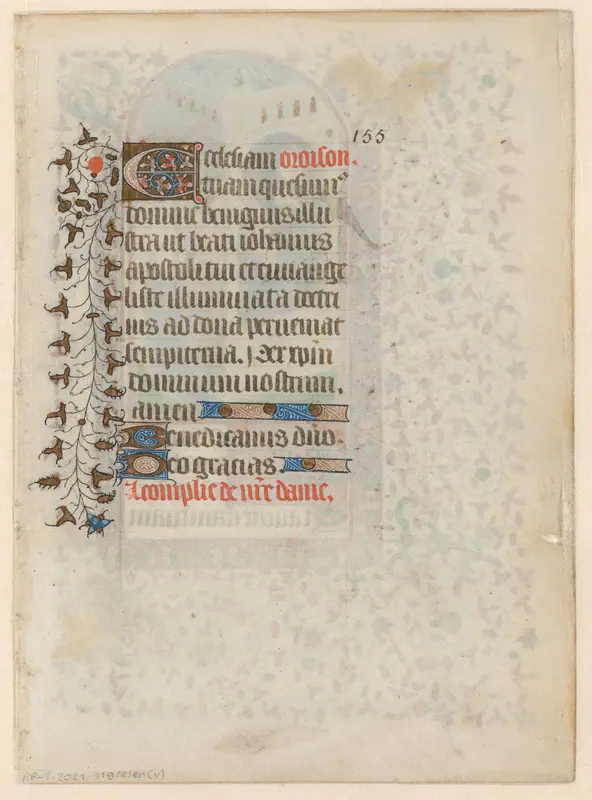 155
Ecclesiam oroison.
tuam quesum⁹
domine benignus illu
stra ut beati iohannis
apostoli tui et euuange
liste illuminata doctri
nis ad dona perueniat
sempiterna. Per xpm
dominum nostrum.
amen
Benedicamus dño.
Deo gracias.
A complie de nr̃e dame.